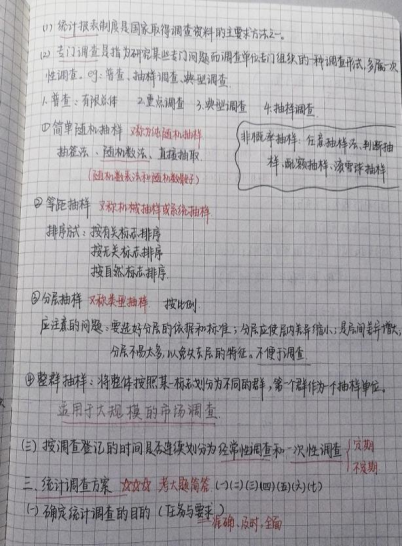 (1) 统计报表制度是国家取得调查资料的主要方法之一。
(2) 专门调查是指为研究某些专门问题而调查单位专门组织的一种调查形式，多属一次
性调查。如：普查、抽样调查、典型调查
1. 普查：有限总体 2.重点调查 3.典型调查 4.抽样调查
①简单随机抽样 又称纯随机抽样
抽签法、随机数法、直接抽取
(随机数表法和随机数骰子)
非概率抽样：任意抽样法、判断抽
样、配额抽样、滚雪球抽样
②等距抽样 又称机械抽样或系统抽样
排序方式：按有关标志排序
按无关标志排序
按自然标志排序
③分层抽样 又称类型抽样 按比例
应注意的问题：要选好分层的依据和标准；分层应使层内差异缩小；是层间差异增大，
分层不易太多，以免失去层的特征。不便于调查
④整群抽样：将整体按照某一标志划分为不同的群，第一个群作为一个抽样单位。
适用于大规模的市场调查
(三) 按调查登记的时间是否连续划分为经常性调查和一次性调查 定期
不定期
三、统计调查方案 ☆☆☆ 考大题简答 (一)(二)(三)(四)(五)(六)(七)
(一) 确定统计调查的目的（任务与要求）
准确、及时、全面